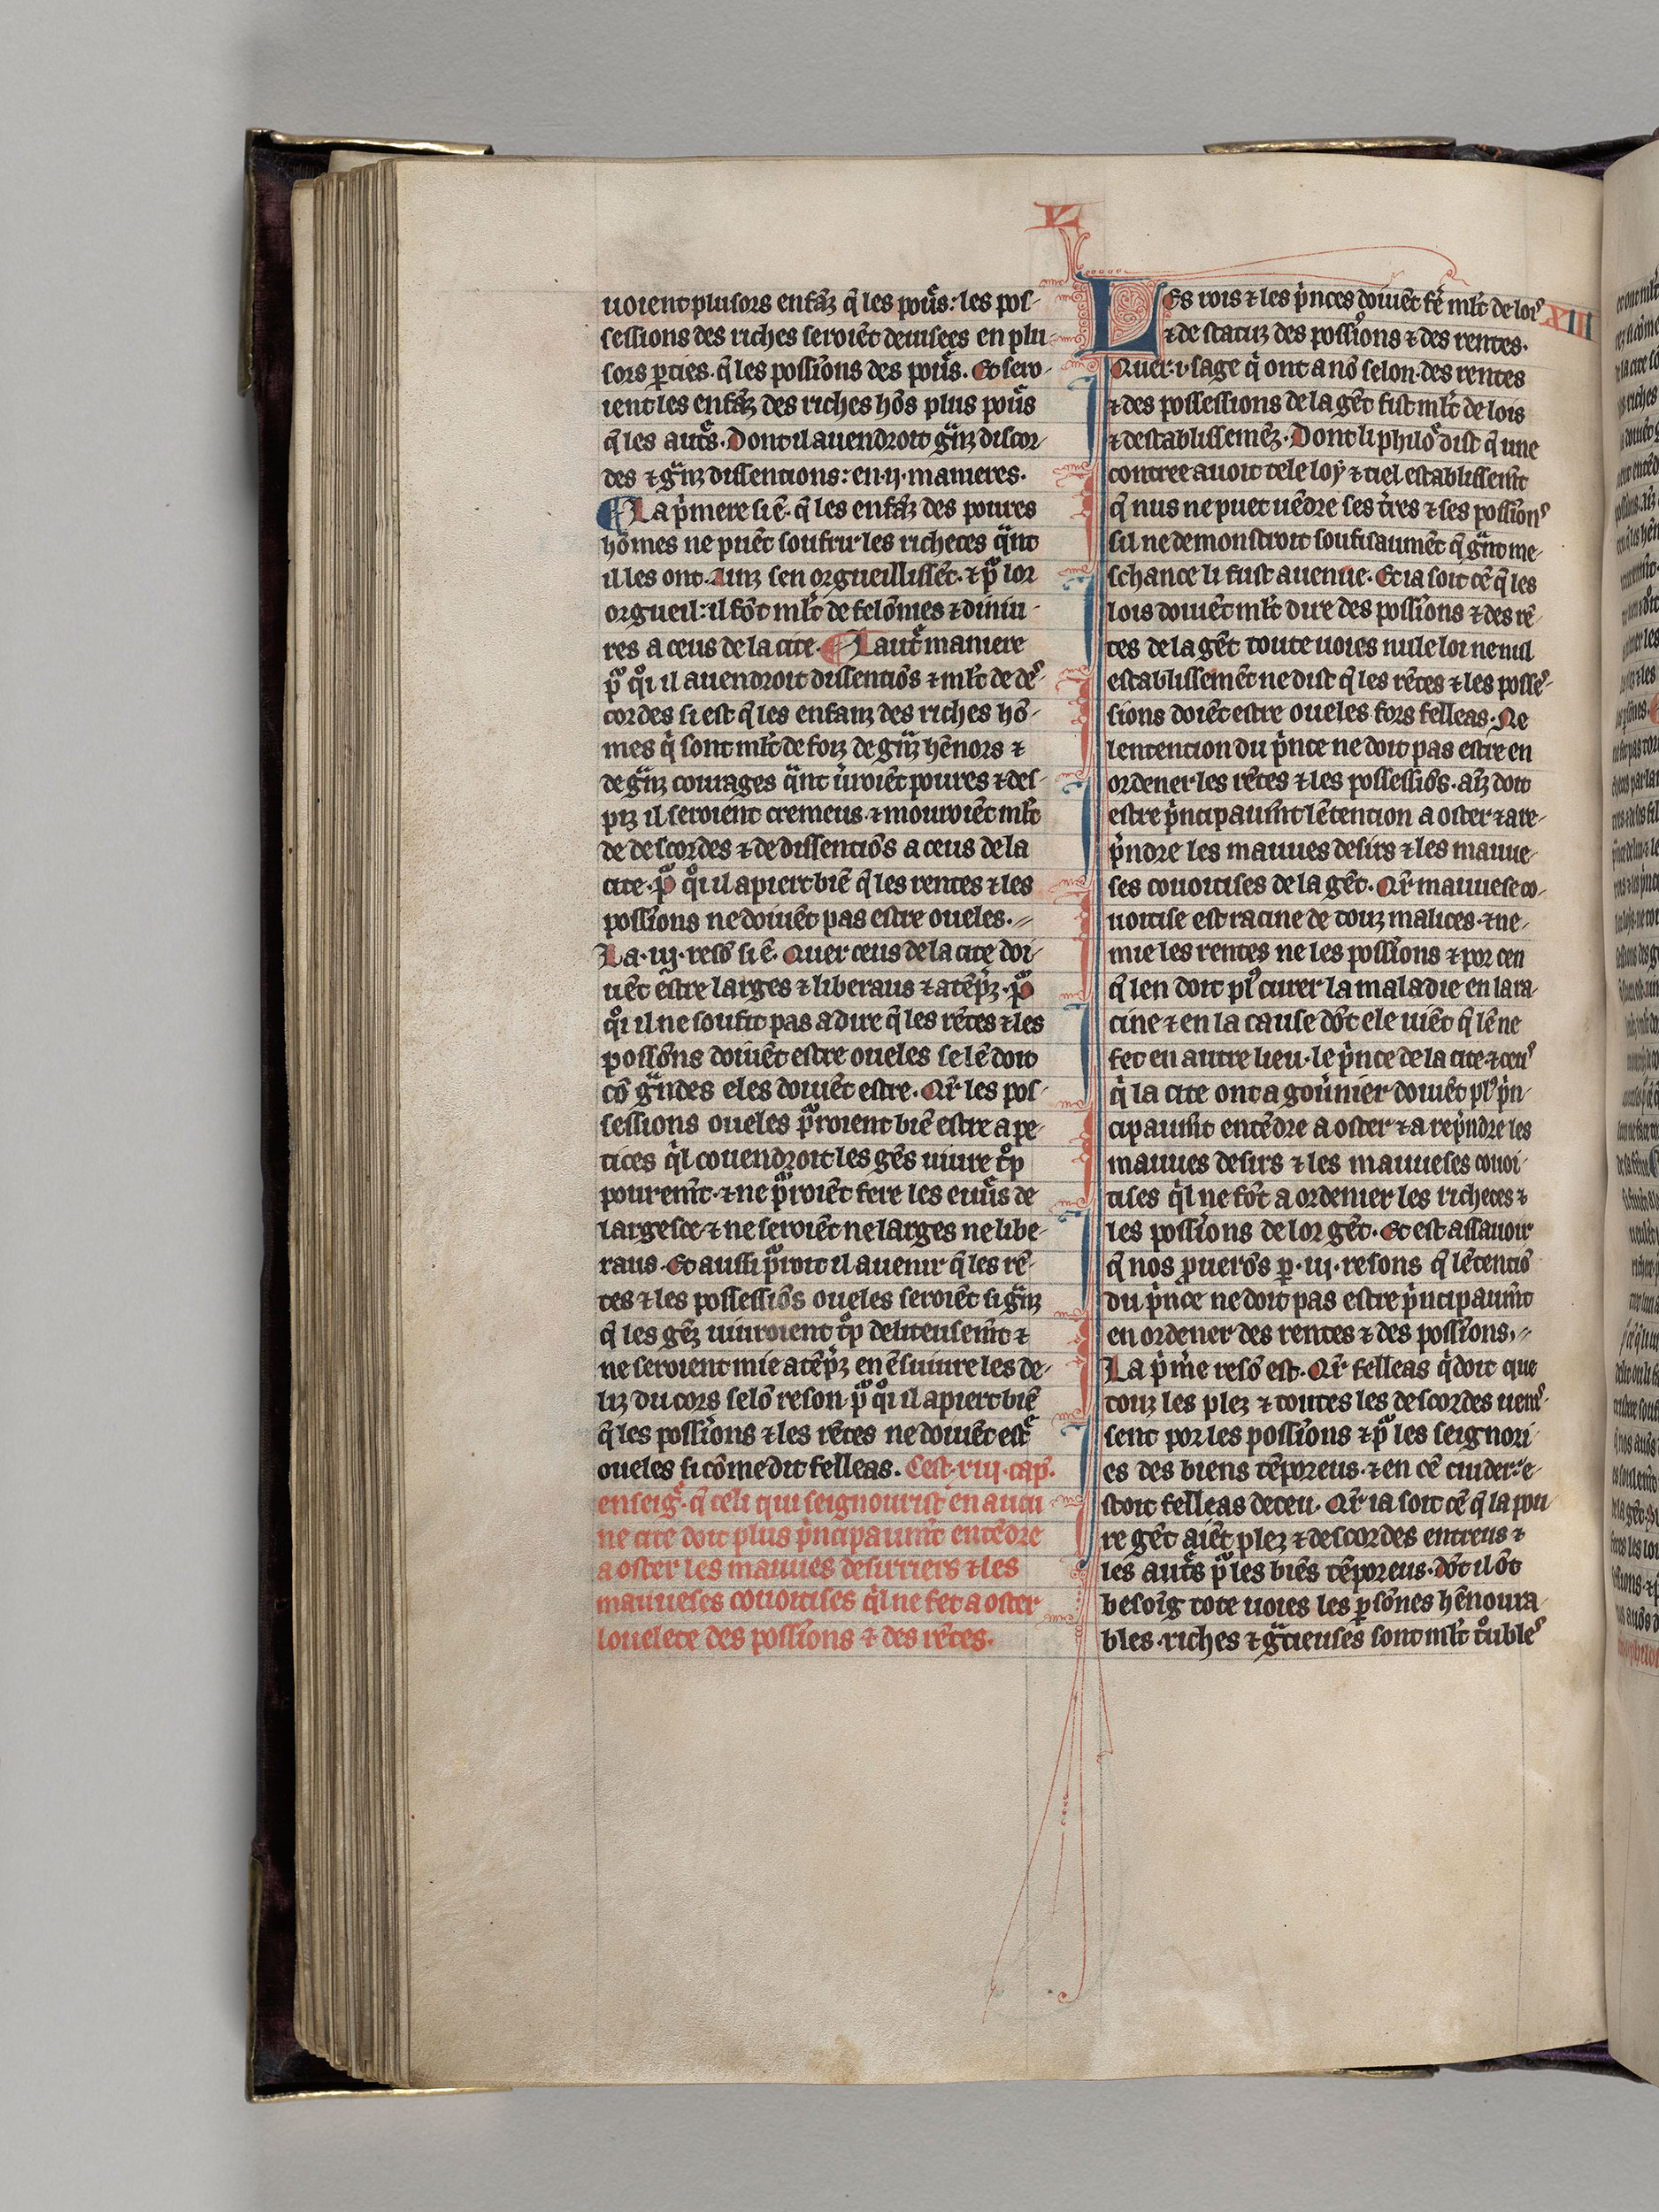 VI
uoient plusors enfãz q̃ les pou͛s: les pos-
sessions des riches seroiẽt deuisees en plu-
sors ꝑties. q̃ les possĩons des pou͛s. Et sero-
ient les enfãz des riches hõs plus pou͛s
q̃ les aut͛s. Dont il auendroit gͣnz discor-
des ⁊ gͣnz dissentions: en .ij. manieres.
¶ La p̍mere si ẽ. q̃ les enfãz des poures
hõmes ne puẽt soufrir les richeces qͣnt
il les ont. Ainz sen orgueillissẽt. ⁊ pͦ lor
orgueil: il fõt ml̃t de felõnies ⁊ diniu-
res a ceus de la cite. ¶ Laut͛ maniere
pͦ qͦi il auendroit dissentiõs ⁊ ml̃t de des-
cordes si est q̃ les enfanz des riches hõ-
mes q̍ sont ml̃t de foiz de gͣnz hẽnors ⁊
de gͣnz courages qͣnt u̍roiẽt poures ⁊ des-
piz il seroient cremeus. ⁊ mouroiẽt ml̃t
de descordes ⁊ de dissentiõs a ceus de la
cite. pͦ qͦi il apiert biẽ q̃ les rentes ⁊ les
possĩons ne doiuẽt pas estre oueles.
La .iij. resõ si ẽ. Quer ceus de la cite doi-
uẽt estre larges ⁊ liberaus ⁊ atẽp̍z. pͦ
qͦi il ne soufit pas a dire q̃ les rẽtes ⁊ les
possõns doiuẽt estre oueles se lẽ doit
cõ gͣndes eles doiuẽt estre. Qr̃ les pos-
sessions oueles pͦroient biẽ estre a pe-
tites q̍l couendroit les gẽs uiure tͦp
pourem̃t. ⁊ ne pͦroiẽt fere les euu͛s de
largesce. ⁊ ne seroiẽt ne larges ne libe-
raus. Et aussi pͦroit il auenir q̃ les rẽ-
tes ⁊ les possessiõs oueles seroiẽt si gͣnz
q̃ les gẽz uiuroient tͦp deliteusem̃t ⁊
ne seroient mie atẽp̍z en ẽsuiure les de-
liz du cors selõ reson. pͦ qͦi il apiert biẽ
q̃ les possĩons ⁊ les rẽtes ne doiuẽt est͛
oueles si cõme dit felleas. Cest .xiij. cap̃.
enseig͛. q̃ celi qui seignourist en aucu-
ne cite doit plus p̍ncipaum̃t entẽdre
a oster les mauues desirriers ⁊ les
mauueses couoitises q̍l ne fet a oster
louelete des possĩons ⁊ des rẽtes.
Les rois ⁊ les p̍nces doiuẽt fẽ ml̃t de lois XIII
⁊ de statuz des possĩons ⁊ des rentes.
Quer. lusage q̍ ont anõ selon des rentes
⁊ des possessions de la gẽt fist ml̃t de lois
⁊ destablissemẽz. Dont li philoͦ dist q̃ une
contree auoit tele loy ⁊ tiel establissem̃t
q̃ nus ne puet uẽdre ses t̍res ⁊ ses possĩons
sil ne demonstroit soufisaumẽt q̃ gͣnt me-
schance li fust auenue. Et ia soit cẽ q̃ les
lois doiuẽt ml̃t dire des possĩons ⁊ des rẽ-
tes de la gẽt toute uoies nule loi ne nul
establissemẽt ne dist q̃ les rẽtes ⁊ les posses-
sions doiẽt estre oueles fors felleas. Ne
lentention du p̍nce ne doit pas estre en
ordener les rẽtes ⁊ les possessiõs. aĩz doit
estre p̍ncipaum̃t lẽtention a oster ⁊ a re-
p̍ndre les mauues desirs ⁊ les mauue-
ses couoitises de la gẽt. Qr̃ mauuese co-
uoitise est racine de touz malices. ⁊ ne-
mie les rentes ne les possĩons ⁊ por cen
q̃ len doit plꝰ curer la maladie en la ra-
cine ⁊ en la cause dõt ele uiẽt q̃ lẽ ne
fet en autre lieu. le p̍nce de la cite ⁊ ceus
q̍ la cite ont a gou̍nier doiuẽt plꝰ p̍n-
cipaum̃t entẽdre a oster ⁊ a rep̍ndre les
mauues desirs ⁊ les mauueses couoi-
tises q̍l ne fõt a ordenier les richeces ⁊
les possĩons de lor gẽt. Et est assauoir
q̃ nos ꝓuerõs ꝑ .iij. resons q̃ lẽtentiõ
du p̍nce ne doit pas estre p̍ncipaum̃t
en ordener des rentes ⁊ des possĩons.
La p̍m̃e resõ est. Qr̃ felleas q̍doit que
touz les plez ⁊ toutes les descordes uenis-
sent por les possĩons ⁊ pͦ les seignori-
es des biens tẽporeus. ⁊ en cẽ cuider e-
stoit felleas deceu. Qr̃ ia soit cẽ q̃ la pou-
re gẽt aiẽt plez ⁊ descordes entreus ⁊
les aut͛s pͦ les biẽs tẽporeus. dõt il õt
besoig tote uoies les ꝑsõnes hẽnoura-
bles. riches ⁊ gͣcieuses sont ml̃t tͦubles